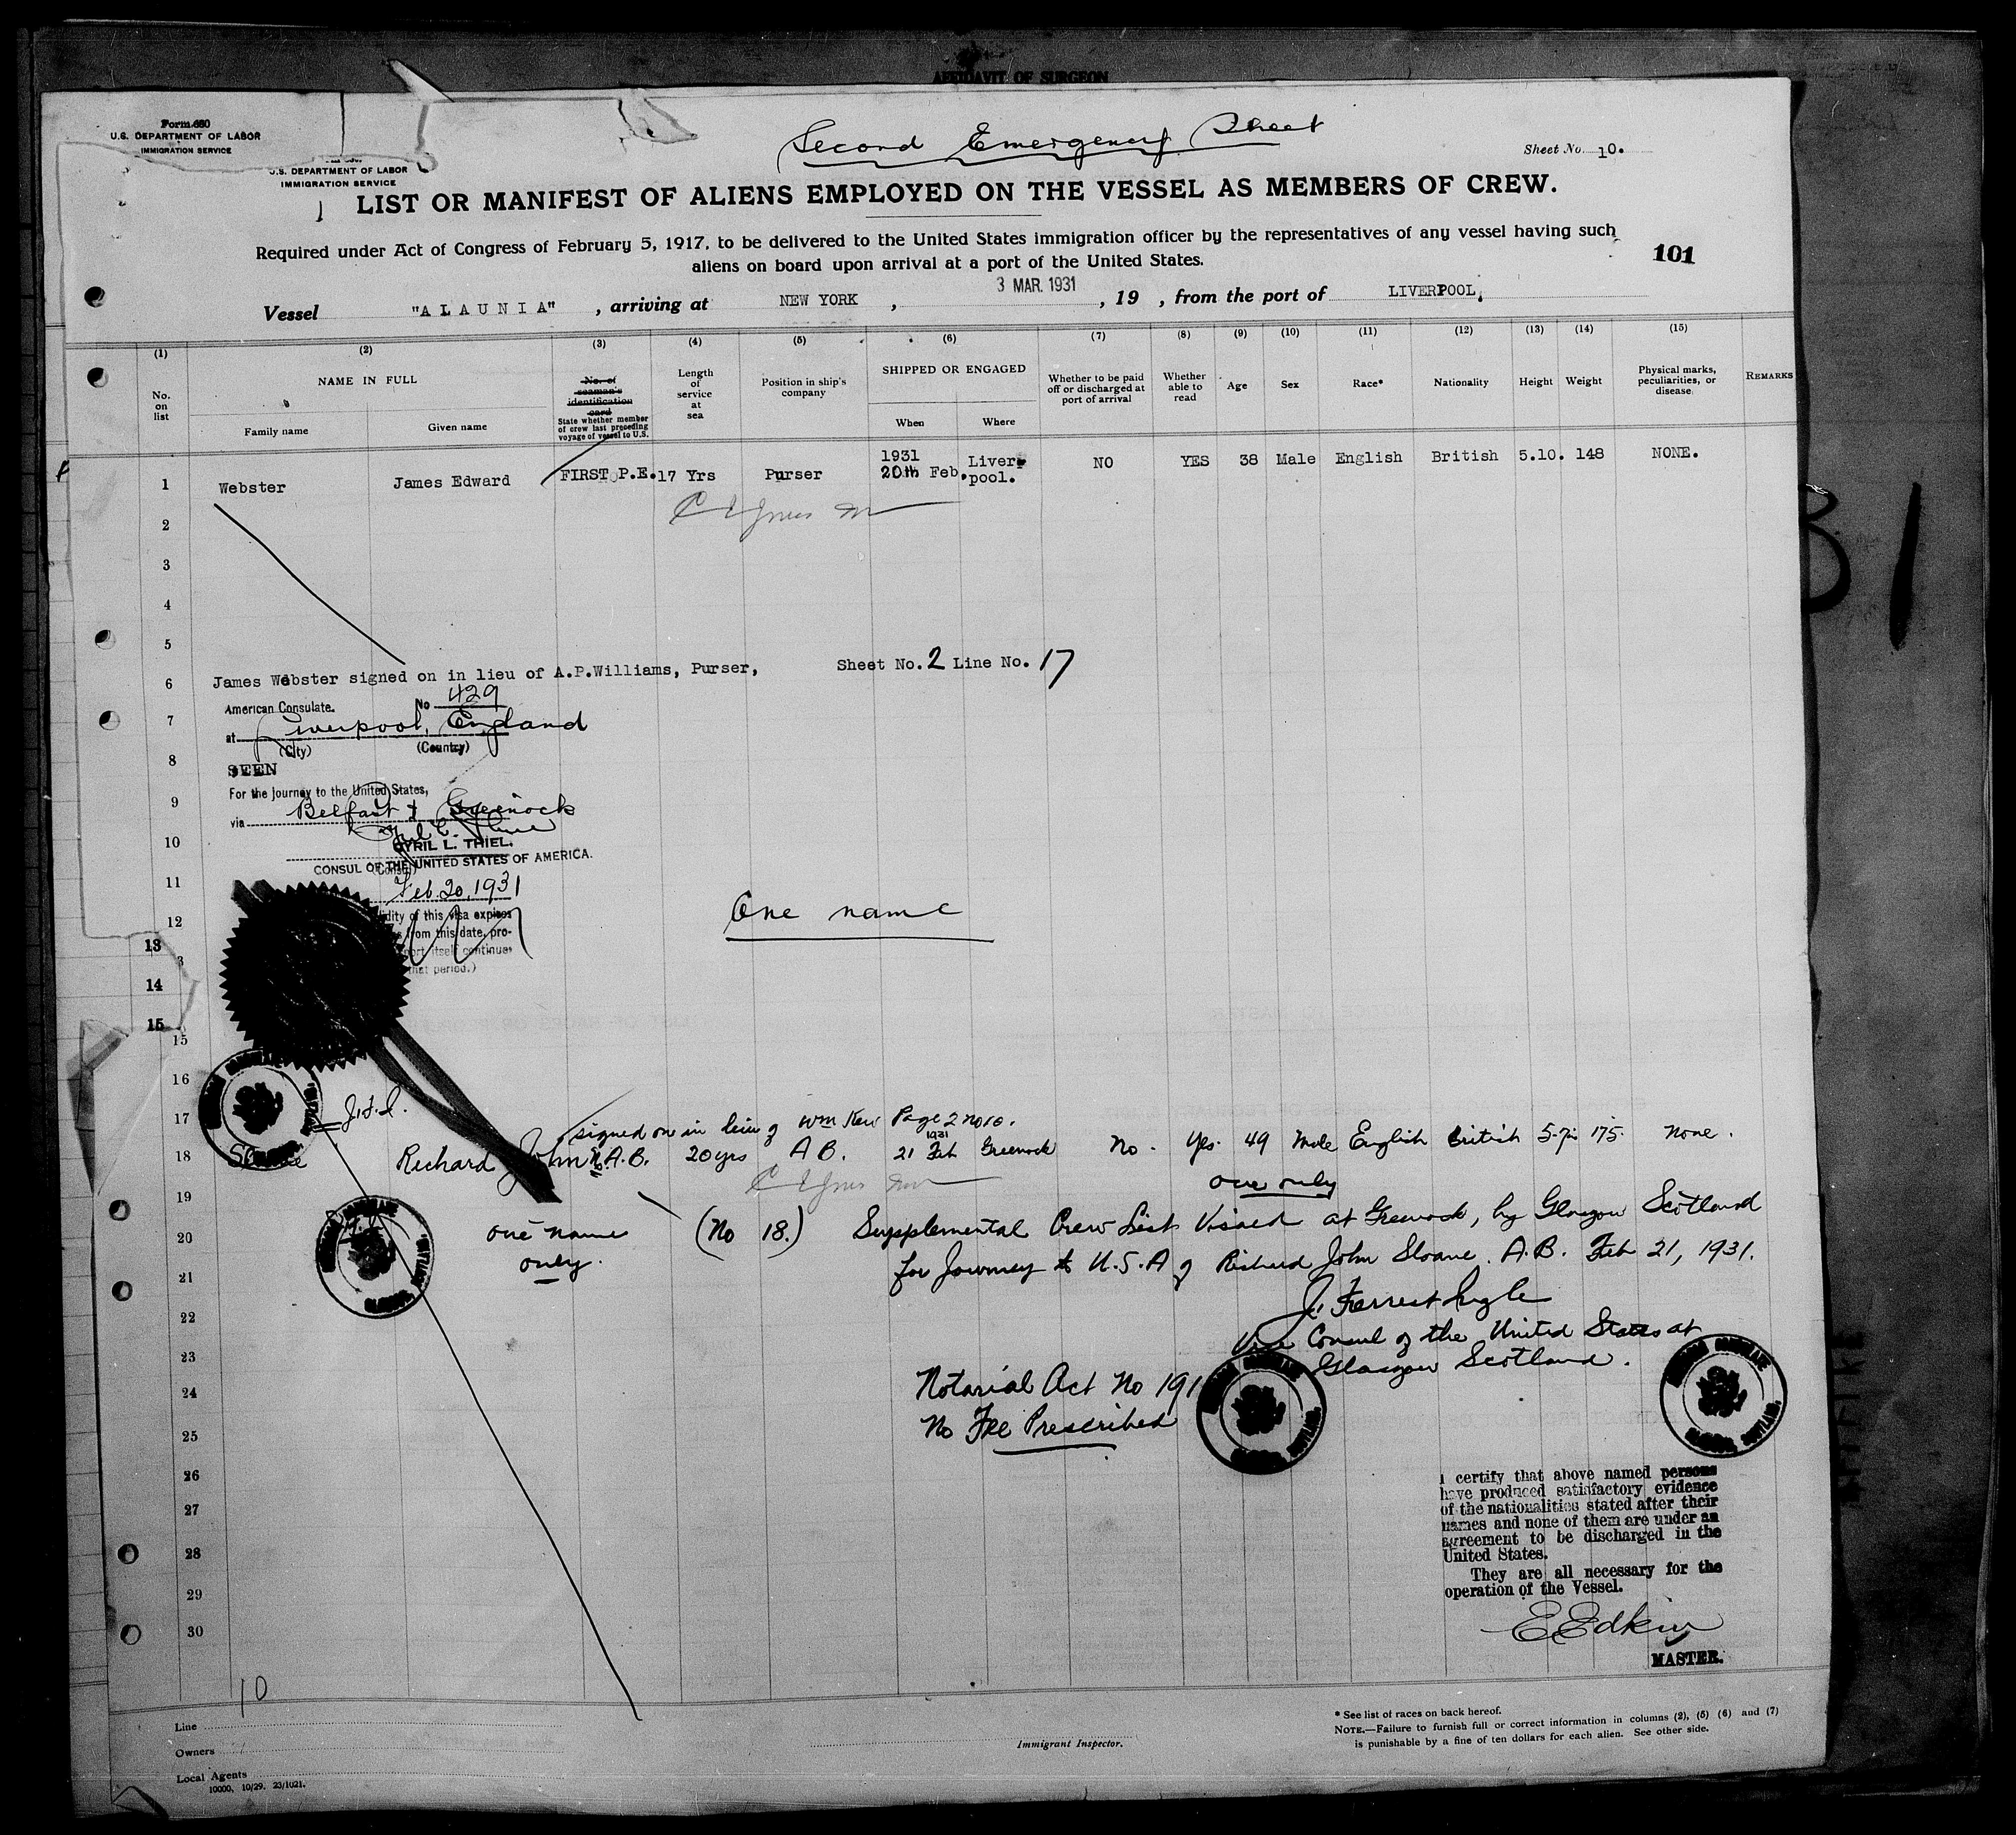 AFFIDAVIT OF SURGEON
Form 680
U.S. DEPARTMENT OF LABOR
IMMIGRATION SERVICE
U.S. DEPARTMENT OF LABOR
IMMIGRATION SERVICE
Second Emergency Sheet
Sheet No. 10.
LIST OR MANIFEST OF ALIENS EMPLOYED ON THE VESSEL AS MEMBERS OF CREW.
Required under Act of Congress of February 5, 1917, to be delivered to the United States immigration officer by the representatives of any vessel having such
aliens on board upon arrival at a port of the United States.
101
Vessel "ALAUNIA", arriving at NEW YORK, 3 MAR. 1931, 19 , from the port of LIVERPOOL.
(1) (2) (3) (4) (5) (6) (7) (8) (9) (10) (11) (12) (13) (14) (15)
No. on list
NAME IN FULL
Family name
Given name
No. of seaman's identification card
State whether member of crew last preceding voyage of vessel to U.S.
Length of service at sea
Position in ship's company
SHIPPED OR ENGAGED
When
Where
Whether to be paid off or discharged at port of arrival
Whether able to read
Age
Sex
Race*
Nationality
Height
Weight
Physical marks, peculiarities, or disease
REMARKS
1 Webster James Edward FIRST P.E. 17 Yrs Purser 1931 20th Feb. Liverpool. NO YES 38 Male English British 5.10. 148 NONE.
2
3
4
5
6 James Webster signed on in lieu of A.P.Williams, Purser, Sheet No. 2 Line No. 17
American Consulate. No 429
7
at Liverpool, England
(City) (Country)
8
SEEN
For the journey to the United States,
9
via Belfast & Greenock
10
CYRIL L. THIEL.
CONSUL OF THE UNITED STATES OF AMERICA.
(Consul)
11
Feb. 20, 1931
idity of this visa expires
12
from this date, pro-
port itself continues
that period.)
One name
13
3
14
15
15
16
17
J.F.I.
signed on in lieu of Wm Kew Page 2 no 10.
18 Sloane Richard John A.B. 20 yrs A B. 21 Feb 1931 Greenock No. Yes. 49 Male English British 5-7½ 175 None.
19
one only
20 one name only. (No 18.) Supplemental Crew List Visaed at Greenock, by Glasgow Scotland
21 for Journey to U.S.A of Richard John Sloane. A.B. Feb 21, 1931.
J. Forrest Ingle
22
Vice Consul of the United States at
23
Glasgow Scotland.
24
Notarial Act No 191
25
No Fee Prescribed
26
27
28
29
30
I certify that above named persons
have produced satisfactory evidence
of the nationalities stated after their
names and none of them are under an
agreement to be discharged in the
United States.
They are all necessary for the
operation of the Vessel.
E Edkin
MASTER.
10
Line
Owners
Local Agents
10000, 10/29. 23/1021.
Immigrant Inspector.
* See list of races on back hereof.
NOTE.—Failure to furnish full or correct information in columns (2), (5) (6) and (7)
is punishable by a fine of ten dollars for each alien. See other side.